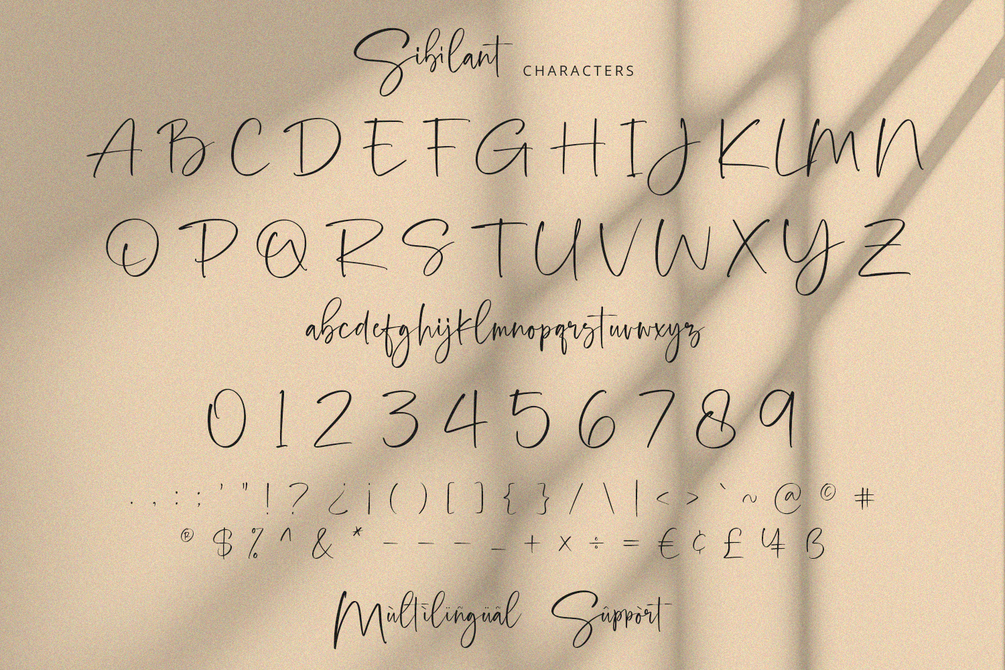 Sibilant CHARACTERS
A B C D E F G H I J K L M N
O P Q R S T U V W X Y Z
abcdefghijklmnopqrstuvwxyz
0 1 2 3 4 5 6 7 8 9
. , : ; ' " ! ? ¿ ¡ ( ) [ ] { } / \ | < > ` ~ @ © #
® $ % ^ & * - – — _ + × ÷ = € ¢ £ ¥ ß
Mùltïlìngüâl Sûppòrt